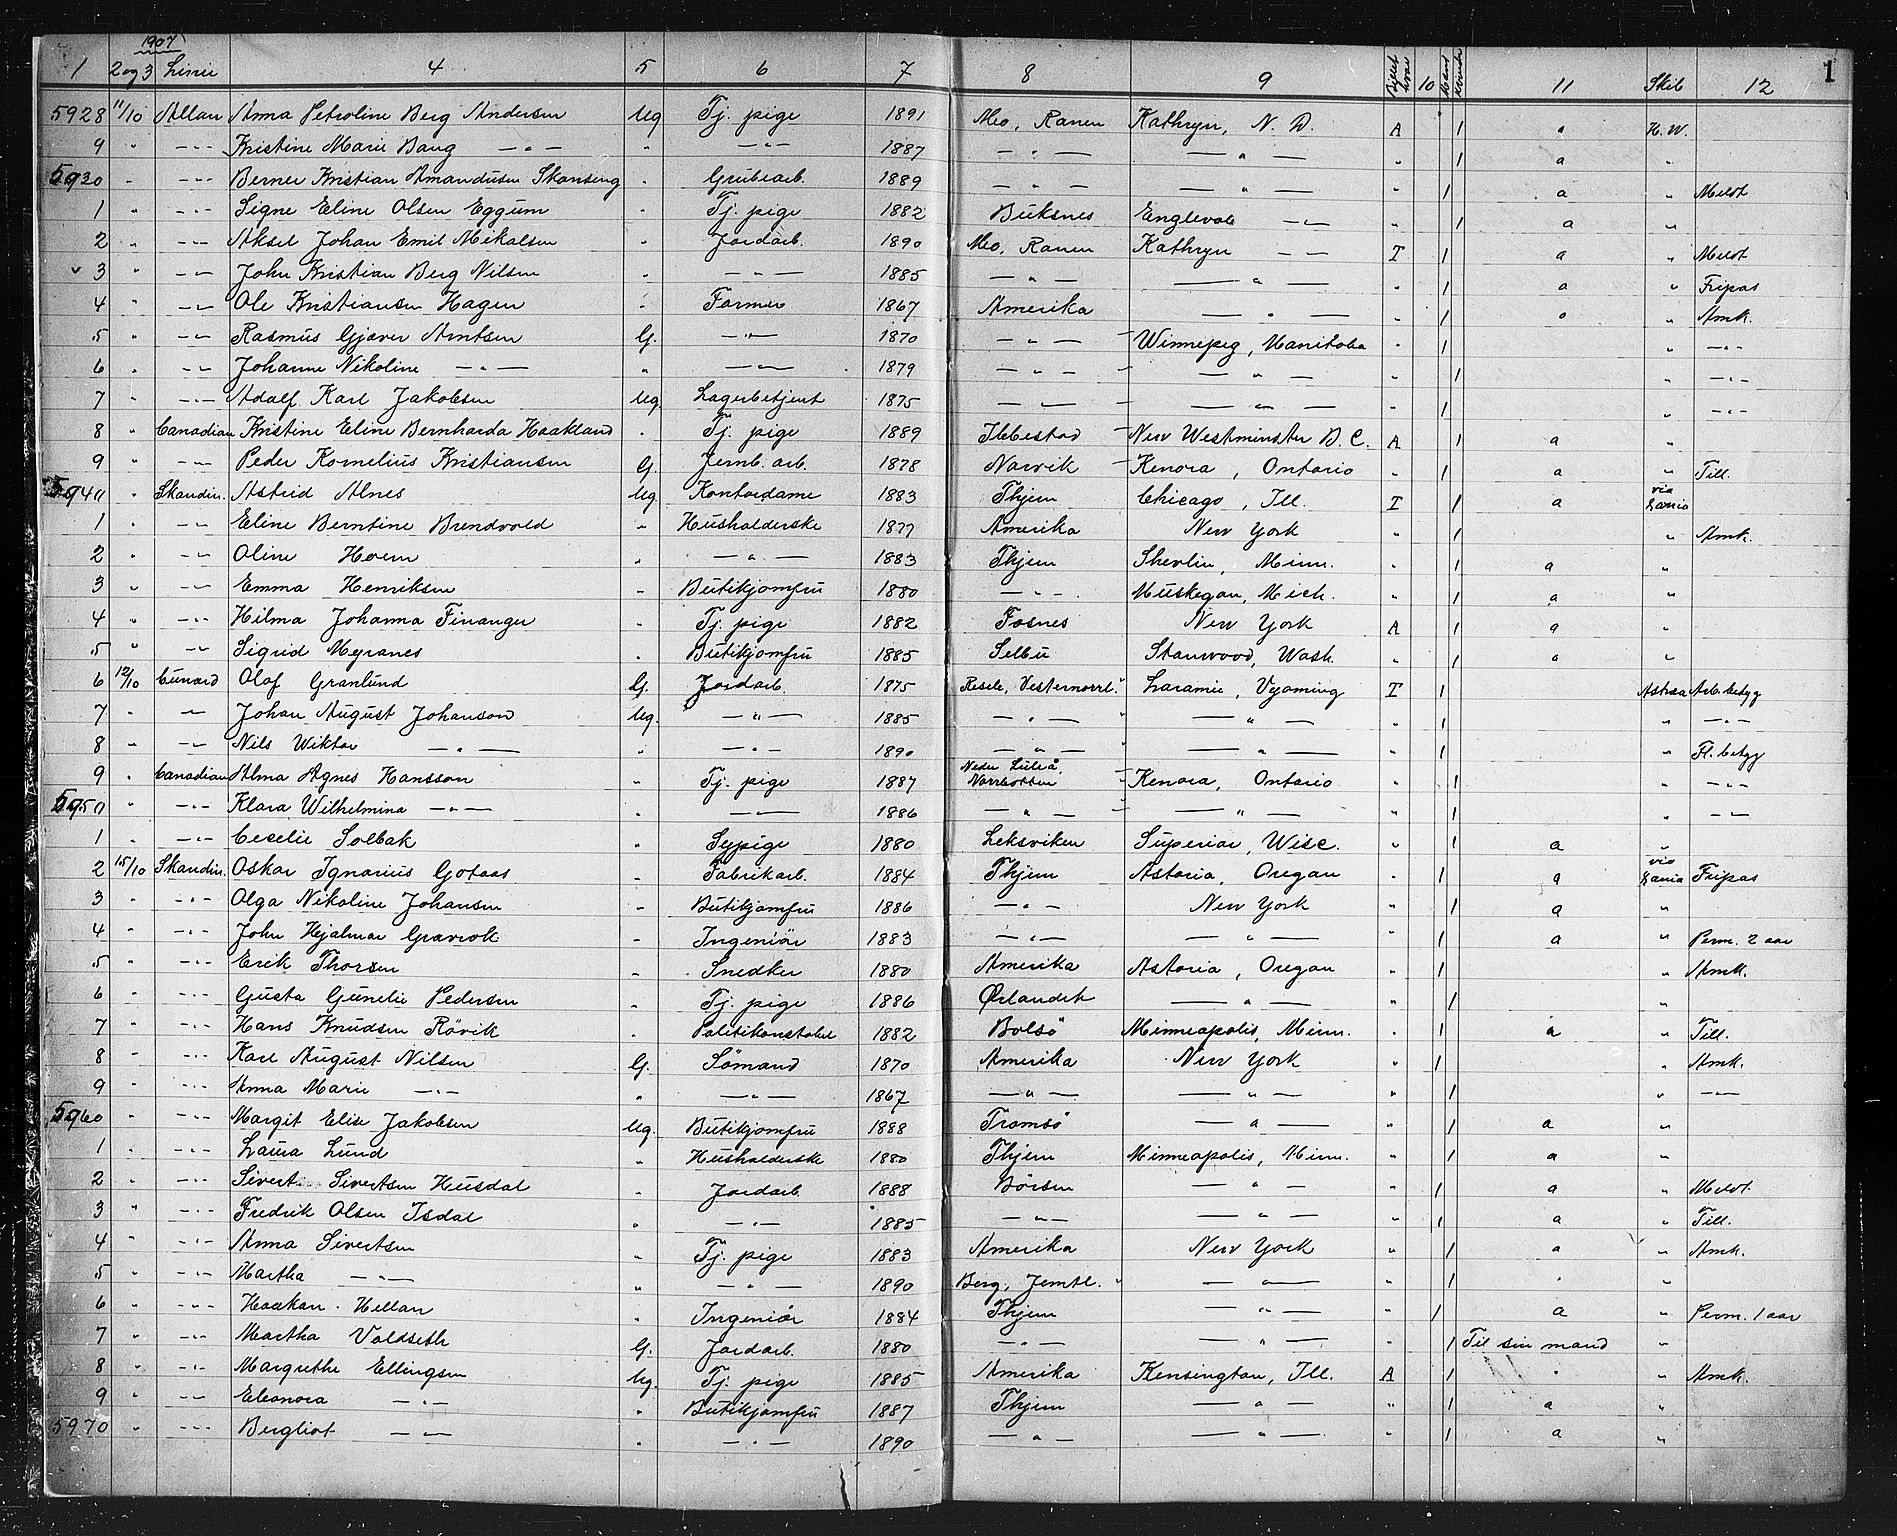 1907
1 2 og 3 Linie 4 5 6 7 8 9 Billet hvor 10 Mænd Kvinder 11 Skib 12 1
5928 11/10 Allan Anna Petroline Berg Andersen Ug Tj. pige 1891 Mo, Ranen Kathryn, N. D. A 1 a H.W.
9 " -"- Kristine Marie Baug -"- " -"- 1887 -"- -"- " 1 a "
5930 " -"- Berner Kristian Amandusen Skonseng " Grubearb. 1889 -"- -"- " 1 a " Meldt
1 " -"- Signe Eline Olsen Eggum " Tj. pige 1882 Buksnes Englevale -"- " 1 a "
2 " -"- Aksel Johan Emil Mikalsen " Jordarb. 1890 Mo, Ranen Kathryn -"- T 1 a " Meldt
3 " -"- John Kristian Berg Nilsen " -"- 1885 -"- -"- " 1 a " Fripas
4 " -"- Ole Kristiansen Hagen " Farmer 1867 Amerika -"- " 1 o " Amk.
5 " -"- Rasmus Gjæver Arntsen G. -"- 1870 -"- Winnepeg, Manitoba " 1 " -"-
6 " -"- Johanne Nikoline -"- " -"- 1879 -"- -"- " 1 " -"-
7 " -"- Adolf Karl Jakobsen Ug. Lagerbetjent 1875 -"- -"- " 1 " -"-
8 " Canadian Kristine Eline Bernharda Haakland " Tj. pige 1889 Ibbestad New Westminster B. C. A 1 a "
9 " -"- Peder Kornelius Kristiansen G. Jernb. arb. 1878 Narvik Kenora, Ontario " 1 a " Till.
5940 " Skandin. Astrid Alnes Ug. Kontordame 1883 Thjem Chicago, Ill. T 1 a via Zania
1 " -"- Eline Berntine Brendvold " Husholderske 1877 Amerika New York " 1 " Amk.
2 " -"- Oline Hoem " -"- 1883 Thjem Shevlin, Minn. " 1 a "
3 " -"- Emma Henriksen " Butikjomfru 1880 -"- Muskegan, Mich. " 1 a "
4 " -"- Hilma Johanna Finanger " Tj. pige 1882 Fosnes New York A 1 a "
5 " -"- Sigrid Myranes " Butikjomfru 1885 Selbu Stanwood, Wash. " 1 a "
6 12/10 Cunard Olof Granlund G. Jordarb. 1875 Resele, Vesternorrl. Laramie, Vyoming T 1 Astræa Arb.betyg
7 " -"- Johan August Johanson Ug. -"- 1885 -"- -"- " 1 " -"-
8 " -"- Nils Wiktor -"- " -"- 1890 -"- -"- " 1 " Fl. betyg
9 " Canadian Alma Agnes Hansson " Tj. pige 1887 Neder Luleå, Norrbotten Kenora, Ontario " 1 " -"-
5950 " -"- Klara Wilhelmina -"- " -"- 1886 -"- -"- " 1 " -"-
1 " -"- Cecelie Solbak " Sypige 1880 Leksviken Superior, Wisc. " 1 a "
2 15/10 Skandin. Oskar Ignarius Gotaas " Fabrikarb. 1884 Thjem Astoria, Oregan " 1 a via Zania Fripas
3 " -"- Olga Nikoline Johansen " Butikjomfru 1886 -"- New York " 1 a "
4 " -"- John Hjalmar Gravrok " Ingeniör 1883 -"- -"- " 1 a " Perm. 2 aar
5 " -"- Erik Thorsen " Snedker 1880 Amerika Astoria, Oregan " 1 " Amk.
6 " -"- Gusta Gunelie Pedersen " Tj. pige 1886 Ørlandet -"- " 1 "
7 " -"- Hans Knudsen Rövik " Politikonstabel 1882 Bolsö Minneapolis, Minn. " 1 a " Till.
8 " -"- Karl August Nilsen G. Sömand 1870 Amerika New York " 1 " Amk.
9 " -"- Anna Marie -"- " -"- 1867 -"- -"- " 1 " -"-
5960 " -"- Margit Elise Jakobsen Ug. Butikjomfru 1888 Tromsö -"- " 1 a "
1 " -"- Laura Lund " Husholderske 1880 Thjem Minneapolis, Minn. " 1 a "
2 " -"- Sivert Sivertsen Husdal " Jordarb. 1888 Börsen -"- " 1 a " Meldt.
3 " -"- Fredrik Olsen Isdal " -"- 1885 -"- -"- " 1 a " Till.
4 " -"- Anna Sivertsen " Tj. pige 1883 Amerika New York " 1 a " Amk.
5 " -"- Martha -"- " -"- 1890 Berg, Jemtl. -"- " 1 "
6 " -"- Haakan Hellan " Ingeniör 1884 Thjem -"- " 1 a " Perm. 1 aar
7 " -"- Martha Voldseth G. Jordarb. 1880 -"- -"- " 1 Til sin mand "
8 " -"- Margrethe Ellingsen Ug. Tj. pige 1885 Amerika Kensington, Ill. A 1 " " Amk.
9 " -"- Eleonora -"- " Butikjomfru 1887 Thjem -"- " 1 a "
5970 " -"- Bergliot -"- " -"- 1890 -"- -"- " 1 a "